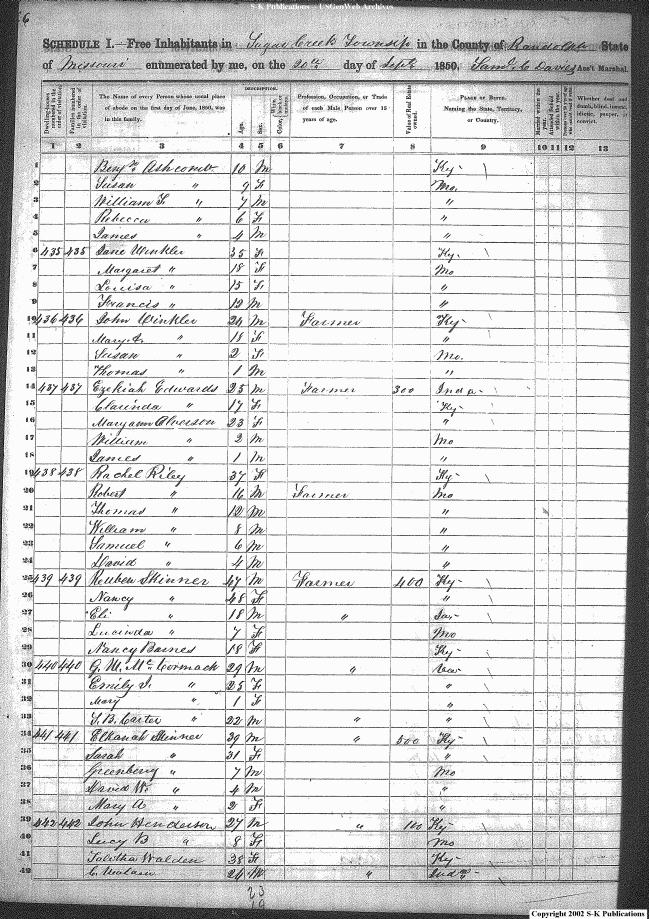 S-K Publications - USGenWeb Archives
6
SCHEDULE I.—Free Inhabitants in Sugar Creek Township in the County of Randolph State
of Missouri enumerated by me, on the 20th day of Sept 1850. Saml C Davis Ass't Marshal.
Dwelling-houses numbered in the order of visitation. Families numbered in the order of visitation. The Name of every Person whose usual place of abode on the first day of June, 1850, was in this family. DESCRIPTION. Age. Sex. Color. Profession, Occupation, or Trade of each Male Person over 15 years of age. Value of Real Estate owned. PLACE OF BIRTH. Naming the State, Territory, or Country. Married within the year. Attended School within the year. Whether deaf and dumb, blind, insane, idiotic, pauper, or convict.
1 2 3 4 5 6 7 8 9 10 11 12 13
1 Benjn Ashcomb 10 M Ky
2 Susan " 9 F Mo.
3 William F " 7 M "
4 Rebecca " 6 F "
5 James " 4 M "
6 435 435 Jane Winkler 35 F Ky
7 Margaret " 18 F Mo
8 Louisa " 15 F "
9 Francis " 12 M "
10 436 436 John Winkler 24 M Farmer Ky
11 Mary " 18 F "
12 Susan " 2 F Mo.
13 Thomas " 1 M "
14 437 437 Ezekiah Edwards 25 M Farmer 300 Inda
15 Clarinda " 17 F Ky
16 Maryann Alverson 23 F "
17 William " 2 M Mo
18 James " 1 M "
19 438 438 Rachel Riley 37 F Ky
20 Robert " 16 M Farmer Mo
21 Thomas " 12 M "
22 William " 8 M "
23 Samuel " 6 M "
24 David " 4 M "
25 439 439 Reuben Skinner 47 M Farmer 400 Ky
26 Nancy " 48 F "
27 Eli " 18 M "
28 Lucinda " 7 F Mo
29 Nancy Barnes 18 F Ky
30 440 440 G. W. McCormack 29 M "
31 Emily J. " 25 F "
32 Mary " 1 F "
33 S. B. Carter " 22 M " "
34 441 441 Elkanah Skinner 39 M " 500 Ky
35 Sarah " 31 F "
36 Greenberry " 7 M Mo
37 David W. " 4 M "
38 Mary A " 2 F "
39 442 442 John Henderson 27 M " 100 Ky
40 Lucy B " 8 F Mo
41 Tabitha Walden 38 F Ky
42 24 M " Inda
23
19
Copyright 2002 S-K Publications